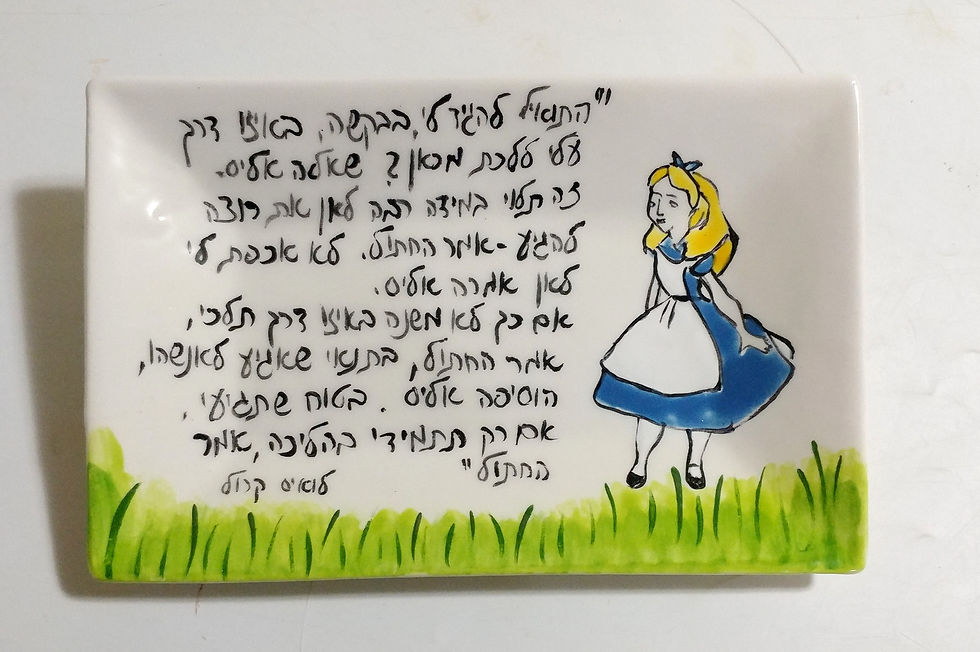 "התואיל להגיד לי, בבקשה, באיזו דרך
עלי ללכת מכאן? שאלה אליס.
זה תלוי במידה רבה לאן את רוצה
להגיע - אמר החתול. לא אכפת לי
לאן אמרה אליס.
אם כך לא משנה באיזו דרך תלכי,
אמר החתול, בתנאי שאגיע לאנשהו,
הוסיפה אליס. בטוח שתגיעי,
אם רק תתמידי בהליכה, אמר
החתול"
לואיס קרול